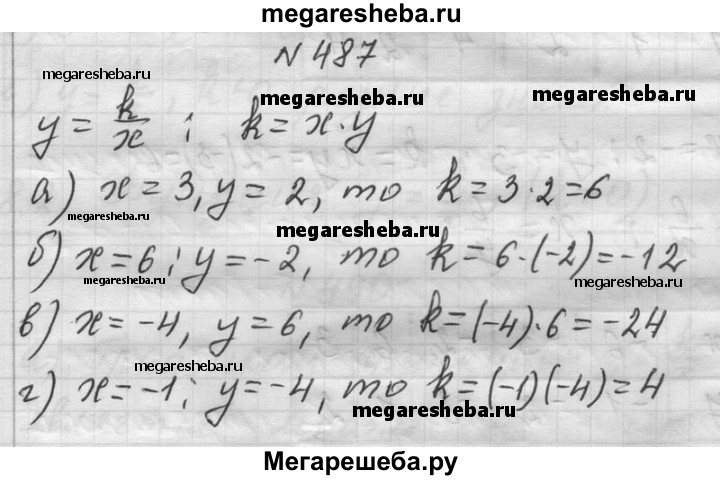 megaresheba.ru
№ 487
megaresheba.ru
megaresheba.ru
megaresheba.ru
y = k/x ; k = x · y
а) x = 3, y = 2, то k = 3 · 2 = 6
megaresheba.ru
megaresheba.ru
б) x = 6 ; y = -2, то k = 6 · (-2) = -12
megaresheba.ru
megaresheba.ru
в) x = -4, y = 6, то k = (-4) · 6 = -24
megaresheba.ru
г) x = -1 ; y = -4, то k = (-1)(-4) = 4
megaresheba.ru
Мегарешеба.ру